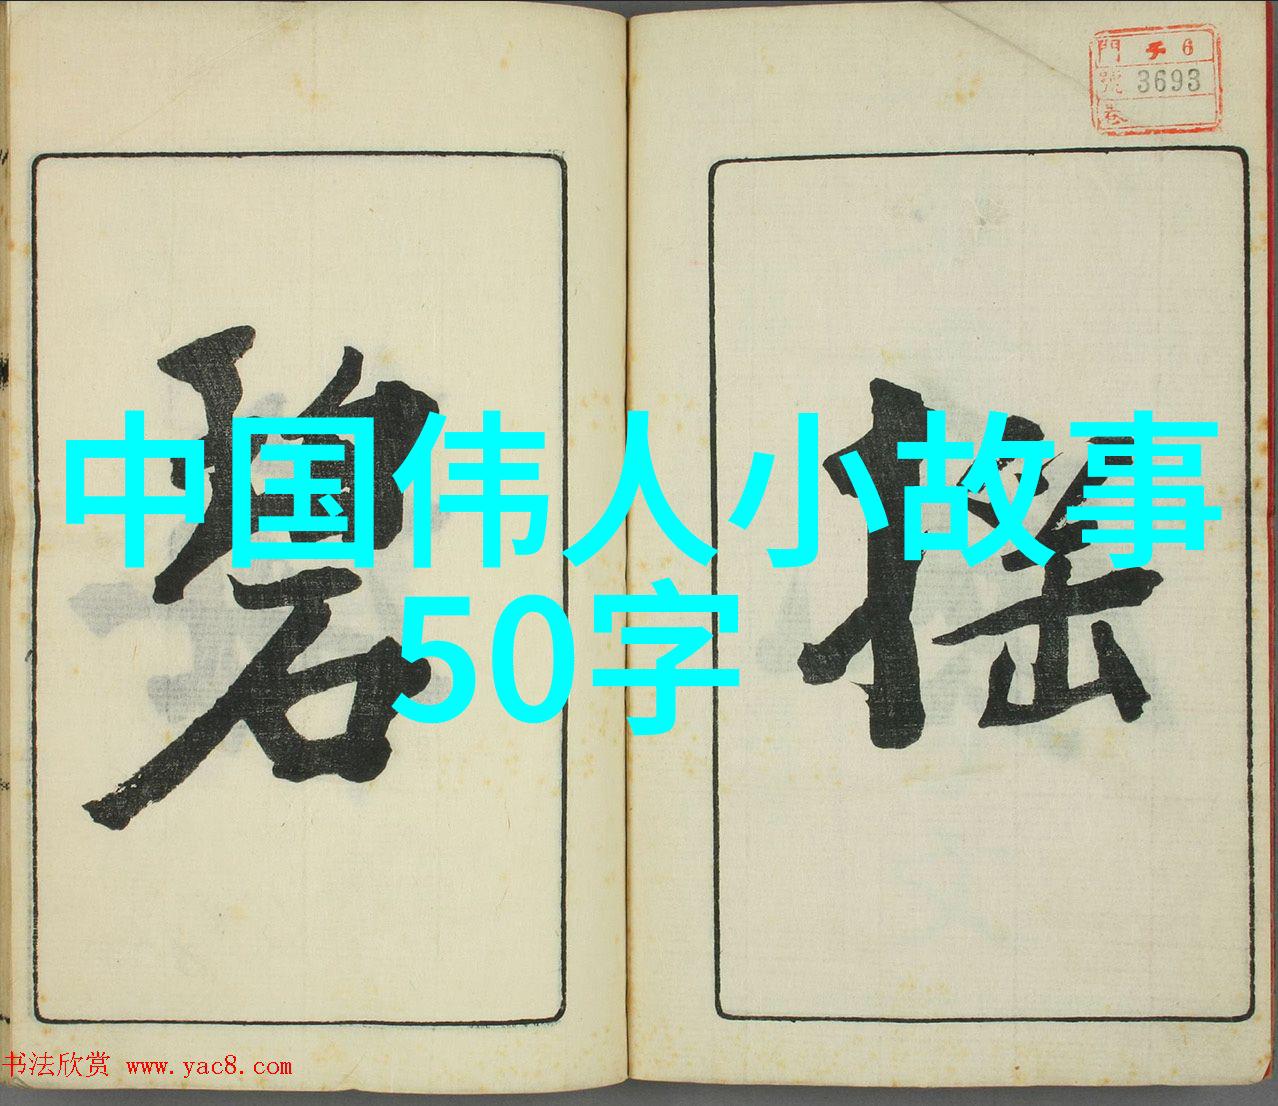 門 チ 6
號 3693
巻
搖
碧
中国伟人小故事
50字
书法欣赏 www.yac8.com